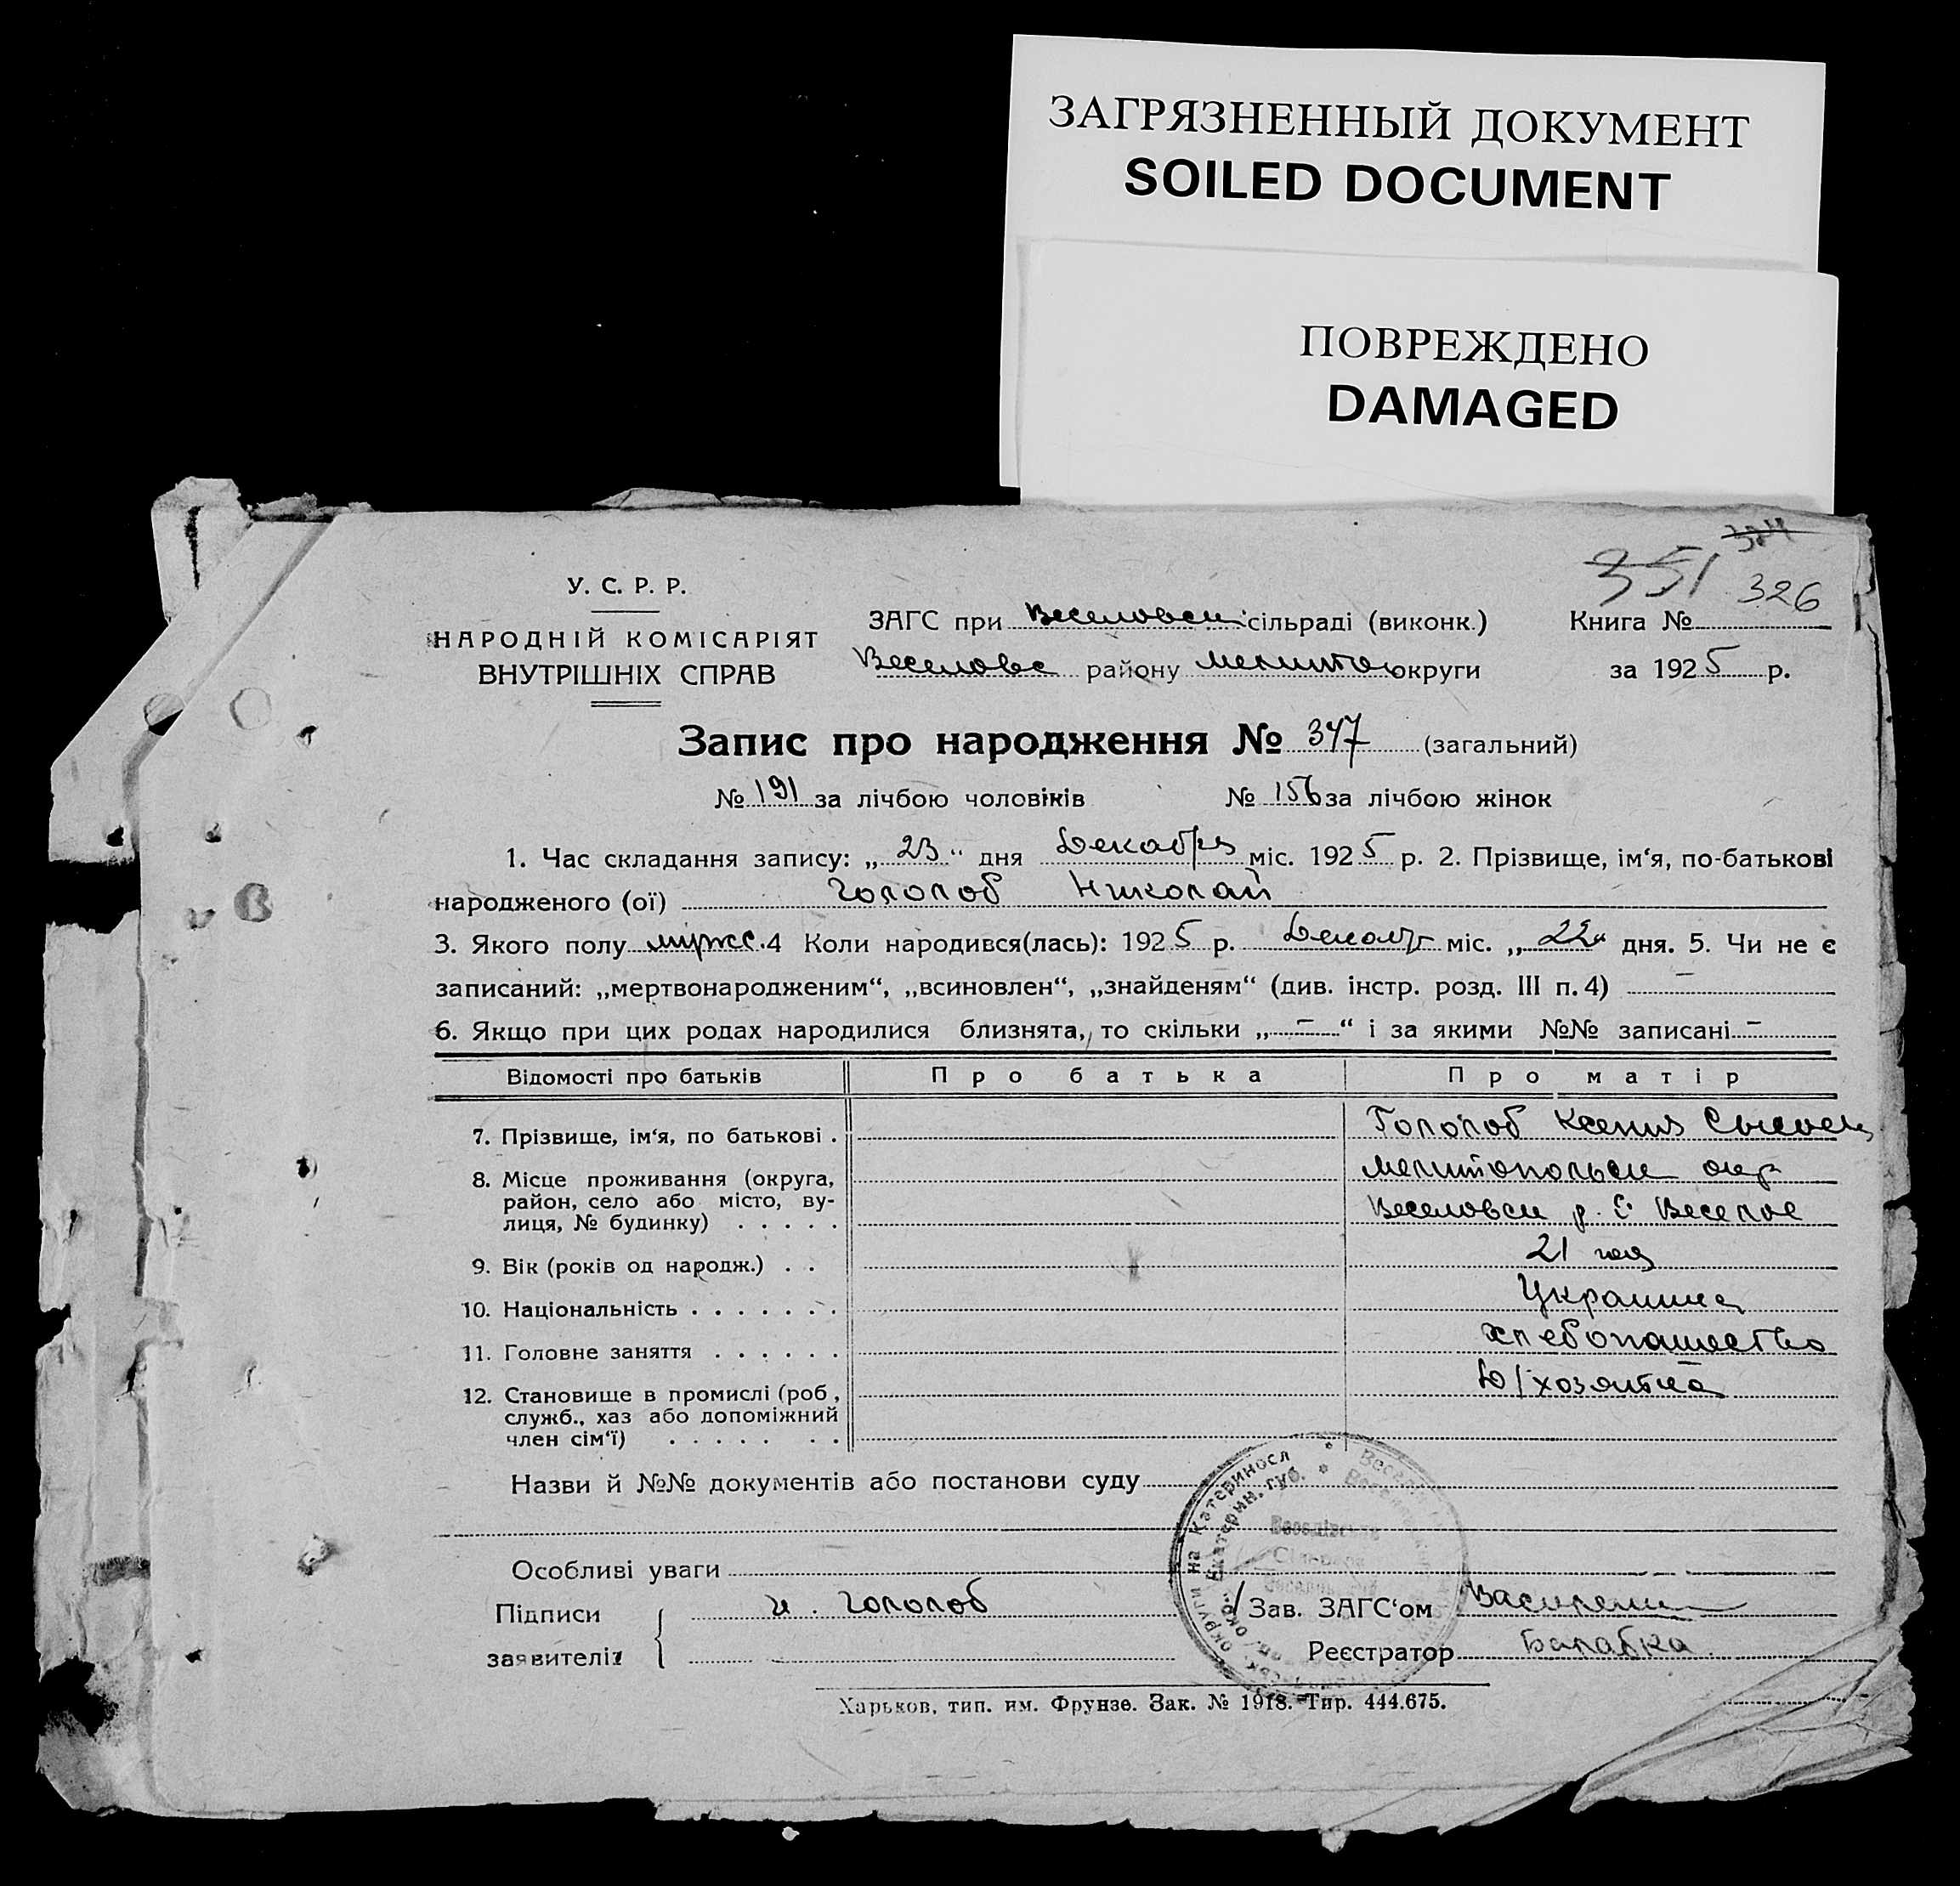 ЗАГРЯЗНЕННЫЙ ДОКУМЕНТ
SOILED DOCUMENT
ПОВРЕЖДЕНО
DAMAGED
351 326
У. С. Р. Р.
НАРОДНІЙ КОМІСАРІЯТ
ВНУТРІШНІХ СПРАВ
ЗАГС при Веселовск сільраді (виконк.)
Веселовс району Мелитоп округи
Книга №
за 1925 р.
Запис про народження № 347 (загальний)
№ 191 за лічбою чоловіків № 156 за лічбою жінок
1. Час складання запису: „ 23 “ дня Декабря міс. 1925 р. 2. Прізвище, ім‘я, по-батькові
народженого (ої) Гололоб Николай
3. Якого полу мужс. 4 Коли народився(лась): 1925 р. Декабр міс. „ 22 “ дня. 5. Чи не є
записаний: „мертвонародженим“, „всиновлен“, „знайденям“ (див. інстр. розд. III п. 4) —
6. Якщо при цих родах народилися близнята, то скільки „ — “ і за якими №№ записані —
Відомості про батьків Про батька Про матір
7. Прізвище, ім‘я, по батькові . Гололоб Ксения
8. Місце проживання (округа, Мелитопольск окр
район, село або місто, ву-
лиця, № будинку) . . . . . Веселовск р. С. Веселое
9. Вік (років од народж.) . . 21 год
10. Національність . . . . . . . Украинка
11. Головне заняття . . . . . . хлебопашество
12. Становище в промислі (роб, хозяйка
служб., хаз або допоміжний
член сім‘ї) . . . . . . .
Назви й №№ документів або постанови суду
Особливі уваги
Підписи
заявителів
и. Гололоб
Зав. ЗАГС‘ом Василенко
Реєстратор Балабка
на Катериносл
Екатерин. губ.
Харьков, тип. им. Фрунзе. Зак. № 1918. Тир. 444.675.